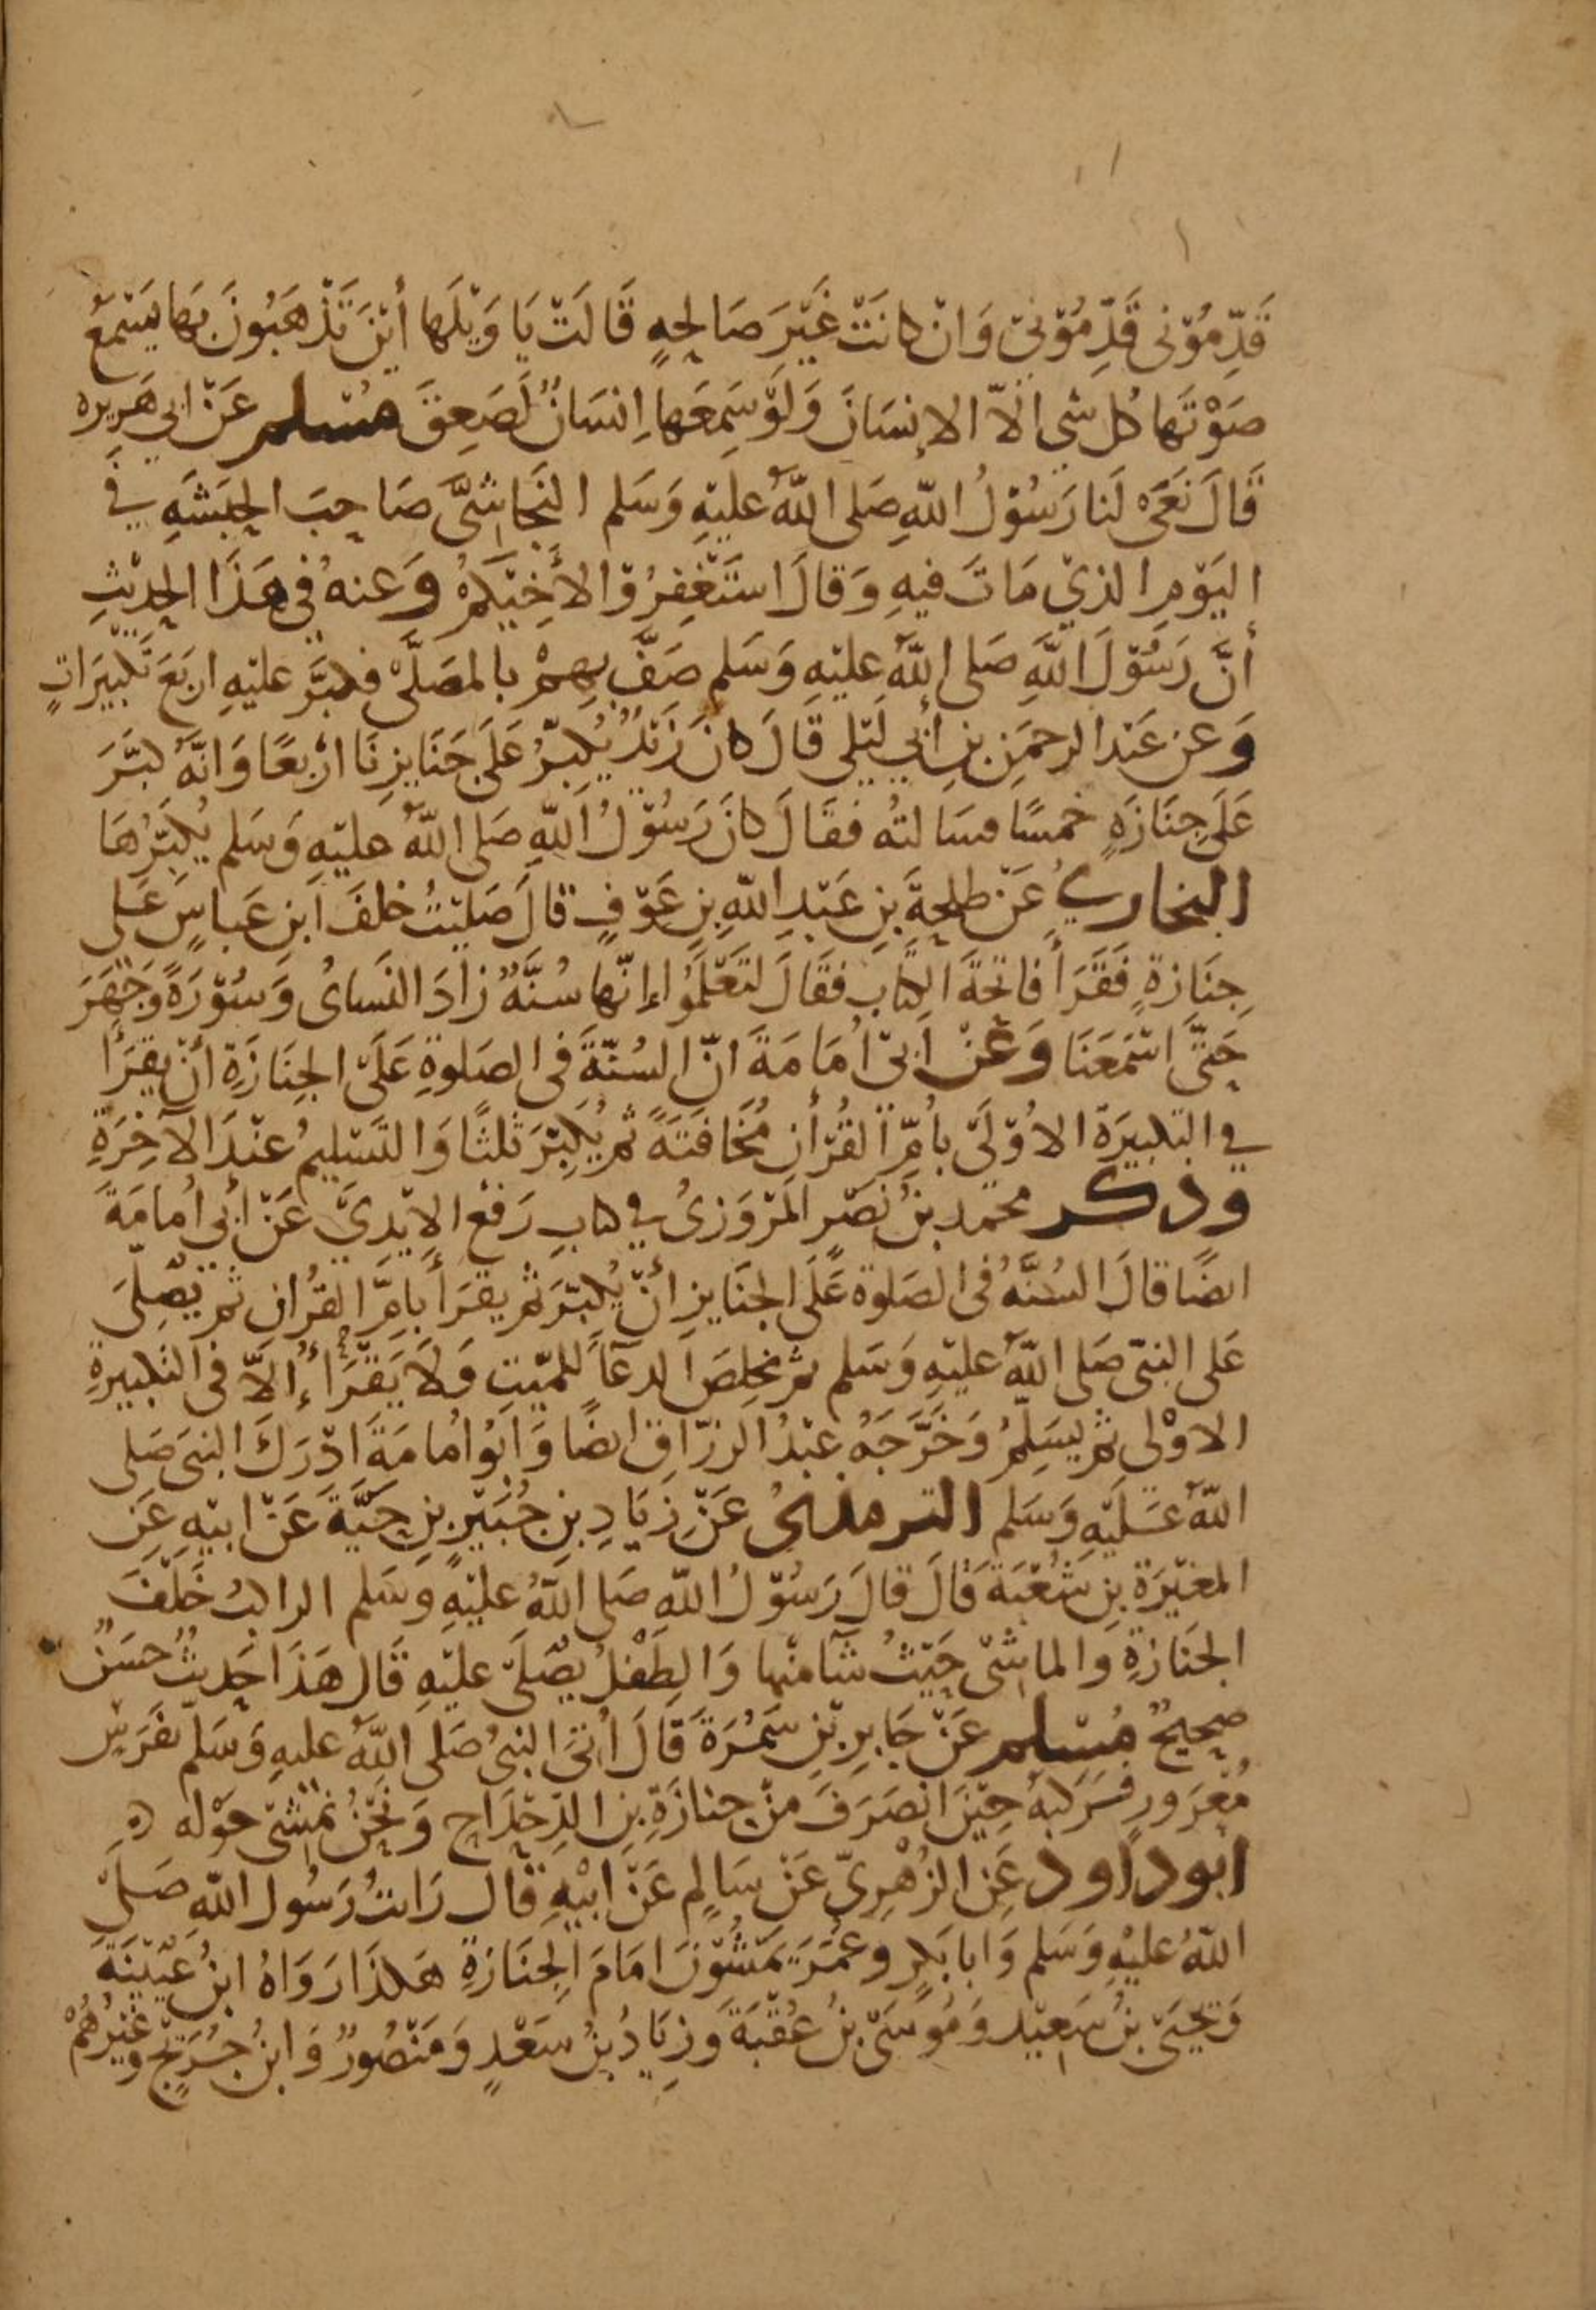 قَدِّمُوْنى قَدِّمُوْنِىْ وَانْ كانَتْ غَيْرَ صَالِحِةٍ قَالَتْ يَا وَيْلَها أيْنَ تَذْهَبُونَ بَها يَسْمَعُ
صَوْتَها كُل شى الاّ الانسَانَ وَلَوْ سَمِعَها اِنسَانٌ لَصَعِقَ مسلم عَنْ ابي هَرِيره
قَالَ نَعَىْ لَنا رَسُوْلُ اللّهِ صَلى اللّهُ عليْهِ وَسَلم النجَاشىَّ صَاحِبَ الحبَشَهِ في
اليَوْمِ الذيْ مَاتَ فيهِ وَقالَ استَغْفِرُوْا لأَخِيْكمْ وَعنهُ فى هَذَا الحدِيْثِ
أنَّ رَسُوْلَ اللّهَِ صَلى اللّهُ عليْهِ وَسَلم صَفَّ بِهِمْ بالمصَلَّىْ فكبَّرَ عليْهِ اربَعَ تَكبيَراتٍ
وَعن عَبْد الرحمَنِ بنِ أبي لَيْلى قَالَ كانَ زَيْدٌ يُكبّرُ عَلَى جَنَايزِنَا ارْبعًا وَانّهُ كبَّرَ
عَلَى جِنَازَهٍ خمسًا فسَالتُه فقَالَ كانَ رَسُوْلُ اللّهِ صَلى اللّهُ عليْهِ وَسَلم يُكبّرُهَا
البخاري عَنْ طلحَةَ بنِ عَبْدِ اللّهِ بنِ عَوْفٍ قالَ صَليْتُ خلفَ ابنِ عَباسٍ عَلى
جِنَازةٍ فَقَرَأَ فاتحةَ الكتَابِ فقَالَ لتَعْلَمُوا إنّها سُنَّهٌ زادَ النسَاىُ وَسُوْرَةً وَجَهَرَ
حَتّى اسْمَعَنَا وَعَنْ ابىْ امَامَةَ انّ السُنّةَ فى الصَلوةِ عَلَىْ الجنَازَةِ أنْ يقرَأ
في التكبيرَة الاوْلَىْ بأمِّ القُرْأنِ مُخَافتَةً ثم يُكبّرَ ثلثًا وَالتَسْليمُ عنْدَ الآخِرَةِ
وذكر محمد بنُ نَصْرٍ المَرْوَزىُ في كتابِ رَفْع الايْدِىْ عَنْ أبى امُامَةَ
ايضًا قالَ السُنَّهُ فى الصَلوة عَلَى الجنَايزِ انْ يُكبّرَ ثم يقرَأَ بأمِّ القرُانِ ثم يُصَلِىَ
عَلى النبىّ صَلى اللّهُ عليْهِ وَسَلم ثم يخلِصَ الدعَآ للميّتِ وَلاَ يَقْرَأَ الاَّ فى التكبيرةِ
الاوْلى ثم يسَلِمُ وَخَرَّجَهُ عبْدُ الرزّاقِ ايضًا وَابُو امُامَةَ ادْرَكَ النبىَ صَلى
اللّهُ عَليْهِ وَسَلم الترمذىُ عَنْ زيَادِ بنِ جُبَيْرِ بنِ حَيَّةَ عَنْ ابيْهِ عَن
المغيْرَةِ بنِ شُعْبَةَ قَالَ قالَ رَسُوْلُ اللّهِ صَلى اللّهُ عليْهِ وَسَلم الراكبُ خَلْفَ
الجَنَازةِ والماشىْ حَيْثُ شَآ منْها وَالطفْلُ يصَلىّ عليْهِ قَال هَذَا حَديثٌ حسَنٌ
صحيحٌ مسلم عَنْ جَابِرِ بْنِ سَمُرَةَ قَالَ أتىَ النبىُ صَلى اللّهُ عليهِ وَسَلم بفَرَسٍ
مُعْرَورٍ فرَكبَهُ حِيْنَ انْصَرَفَ منْ جنازَةِ بنِ الدِحْدَاحِ وَنحْنُ نمْشى حوْله ه
ابو داود عَنِ الزُهْرِىّ عَنْ سَالِمٍ عَنْ ابيْهِ قَال رَايتُ رَسُول اللّهِ صَلى
اللّهُ عليْهِ وَسَلم وَابا بَكرٍ وعُمَرَ يَمشُوْنَ امَامَ الجنَازةِ هَكذَا رَوَاهُ ابنُ عُيَيْنَةَ
وَيحيَى بنُ سَعِيْد وَمُوسَىْ بنُ عُقْبَةَ وَزِيَادُ بنُ سَعْدٍ وَمَنْصُورٌ وَابنُ جُرَيْجٍ وغيْرُهُمْ